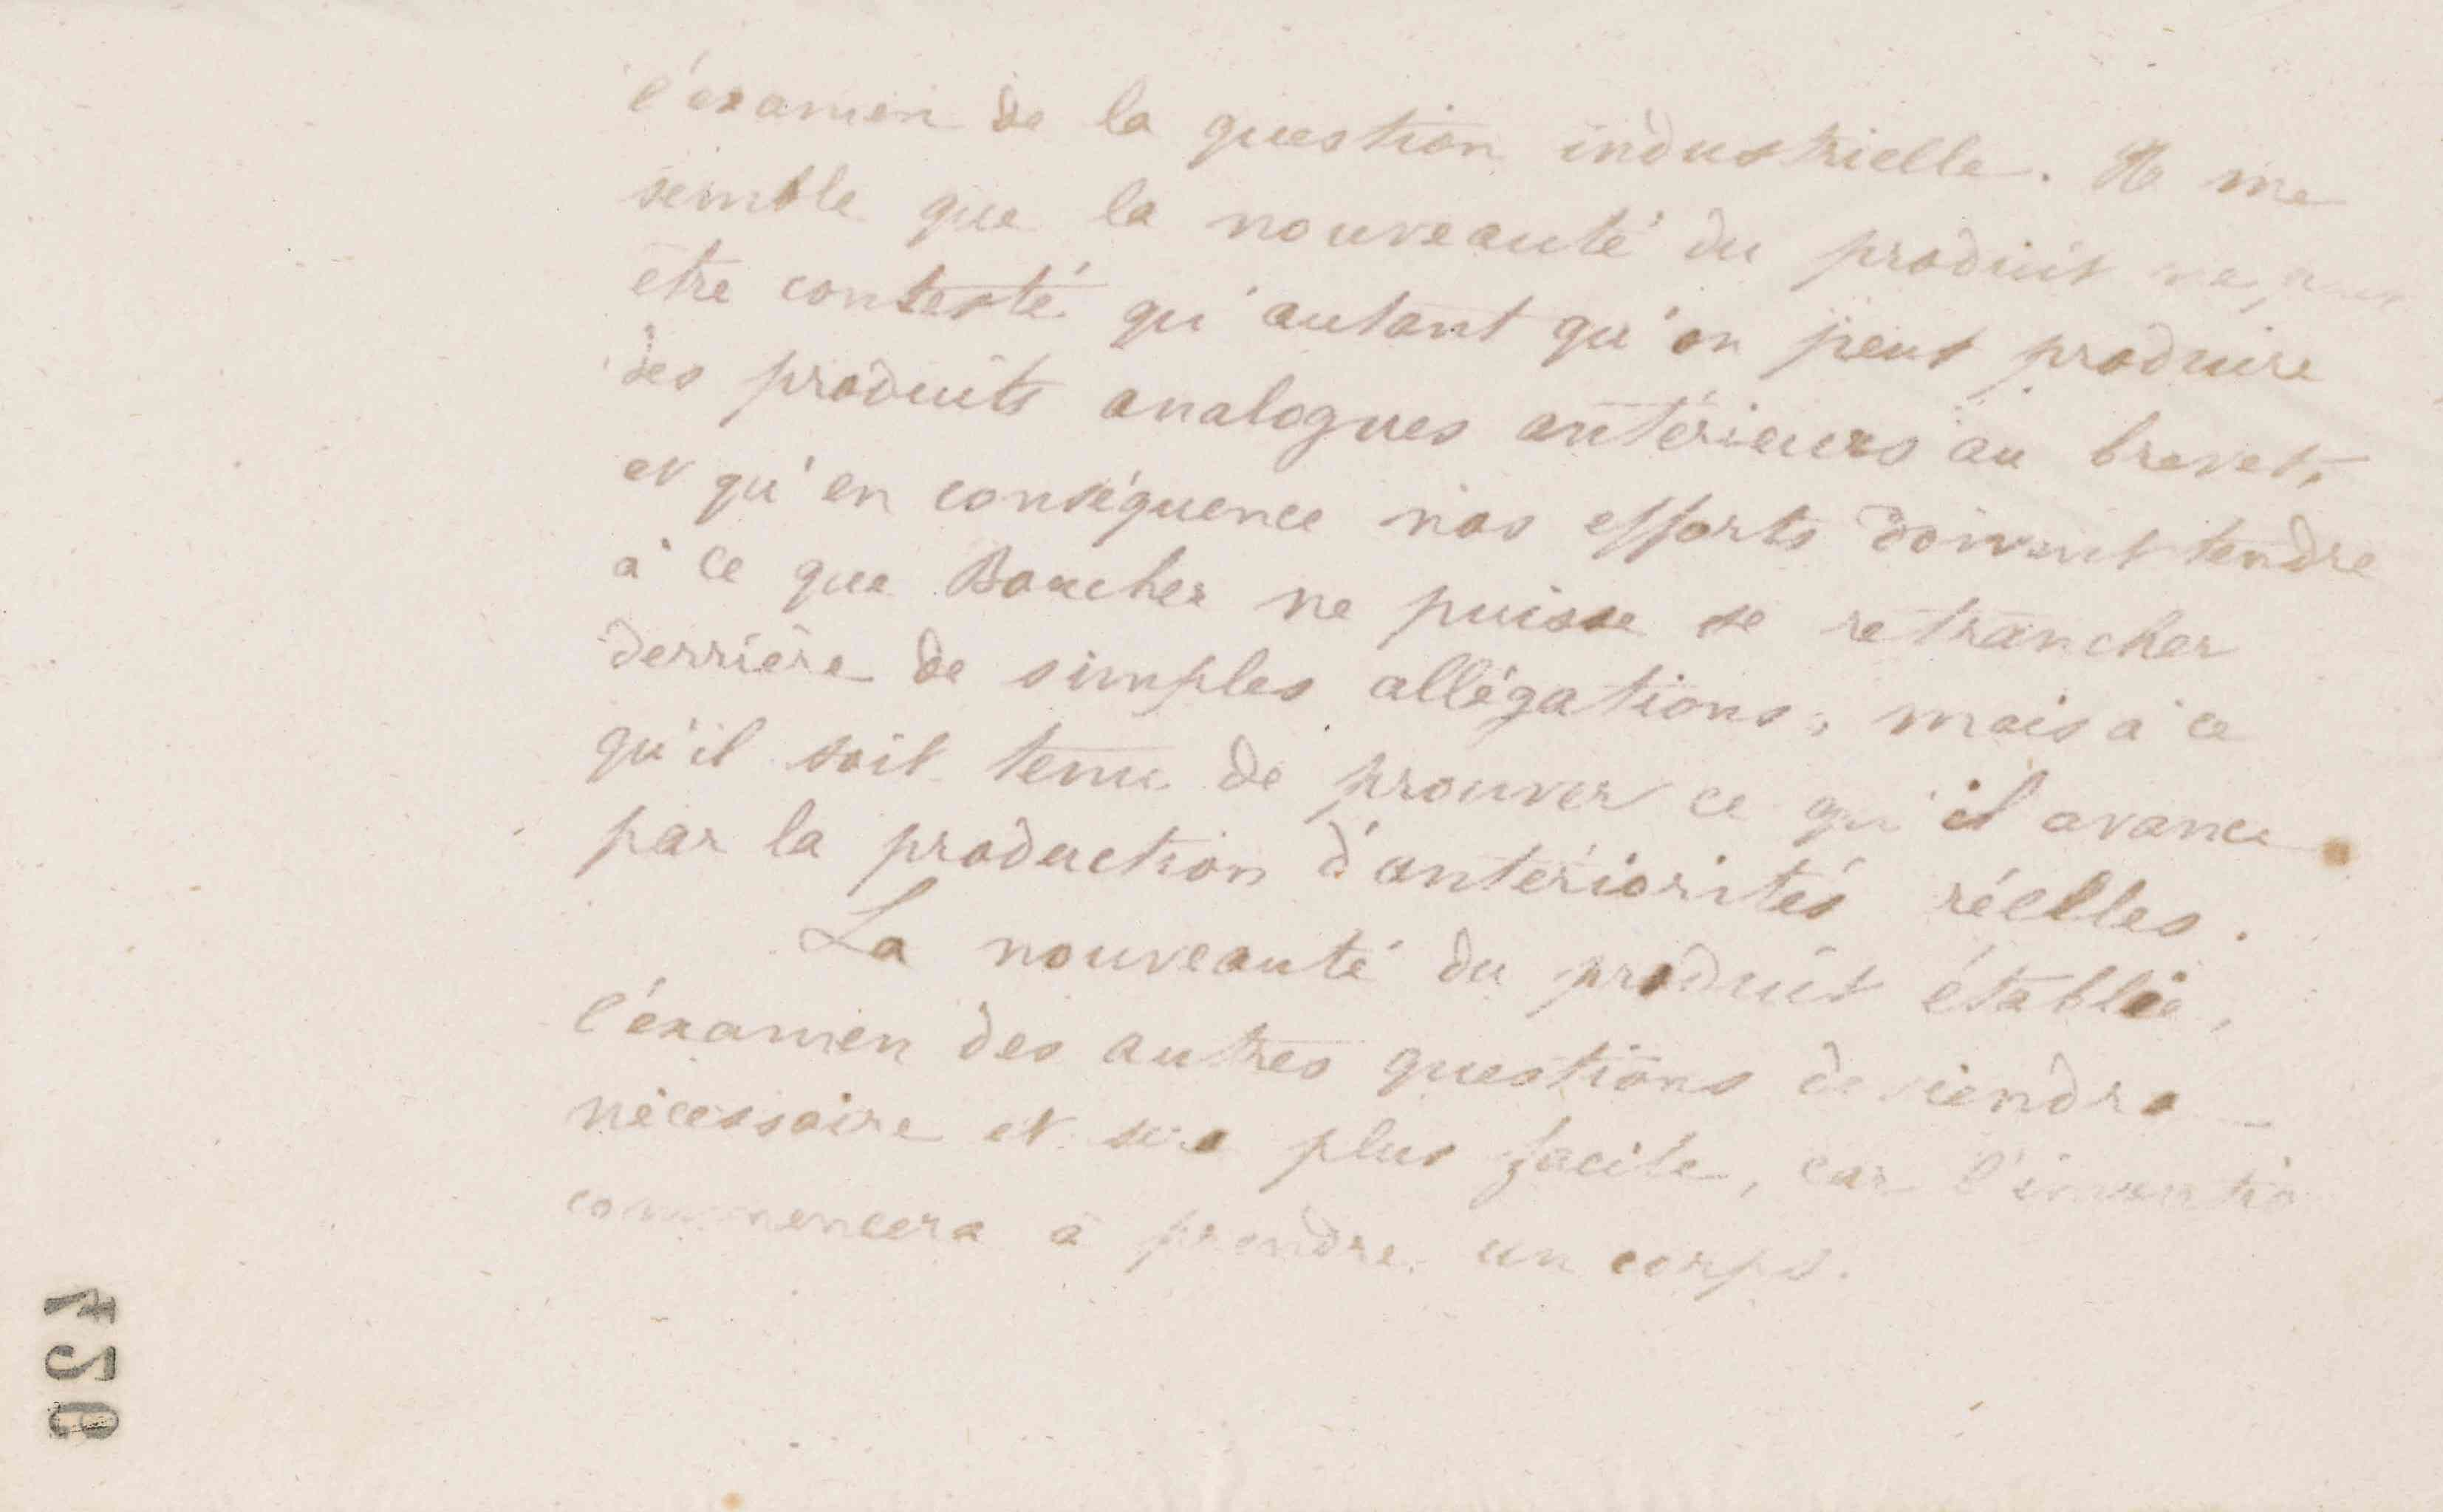 l'éxamen de la question industrielle. Il me
semble que la nouveauté du produit ne peut
être contesté qu'autant qu'on peut produire
des produits analogues antérieurs au brevet,
et qu'en conséquence nos efforts doivent tendre
à ce que Boucher ne puisse se retrancher
derrière de simples allégations, mais à ce
qu'il soit tenu de prouver ce qu'il avance
par la production d'antériorités réelles.
La nouveauté du produit établie,
l'éxamen des autres questions deviendra
nécessaire et sera plus facile, car l'invention
commencera à prendre un corps.